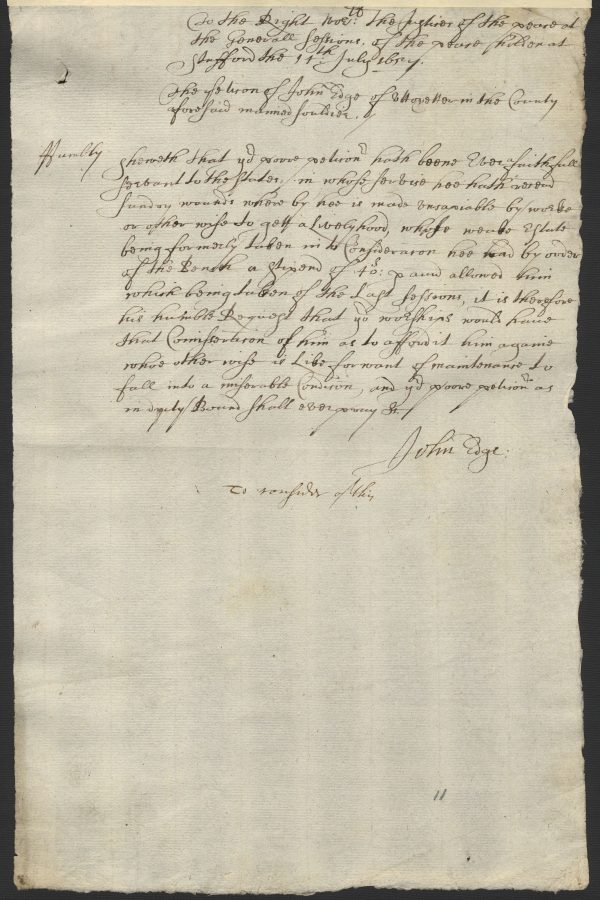 To the Right Wor:ll the Justices of the peace at
the Generall Sessions of the peace holden at
Stafford the 11th July
The peticon of John Edge of Uttoxetter in the County
aforesaid maimed souldier.
Humbly Sheweth that yor poore peticonr hath beene Ever a faithfull
Servant to the States, in whose service hee hath receivd
sundry wounds where by hee is made uncapiable by worke
or other wise to gett a livelyhood, whose weake Estate
being formerly taken in to Consideracon hee had by order
of the Bench a stipend of 40s: p annu allowed him
which being taken of the Last Sessions, it is therefore
his humble Request that yor worships would have
that Comisseracon of him as to afford it him againe
whoe other wise is Like for want of maintenance to
fall into a miserable Condicon, and yor poore peticonr as
in dutty Bound shall ever pray &c
John Edge:
To consider of this
11